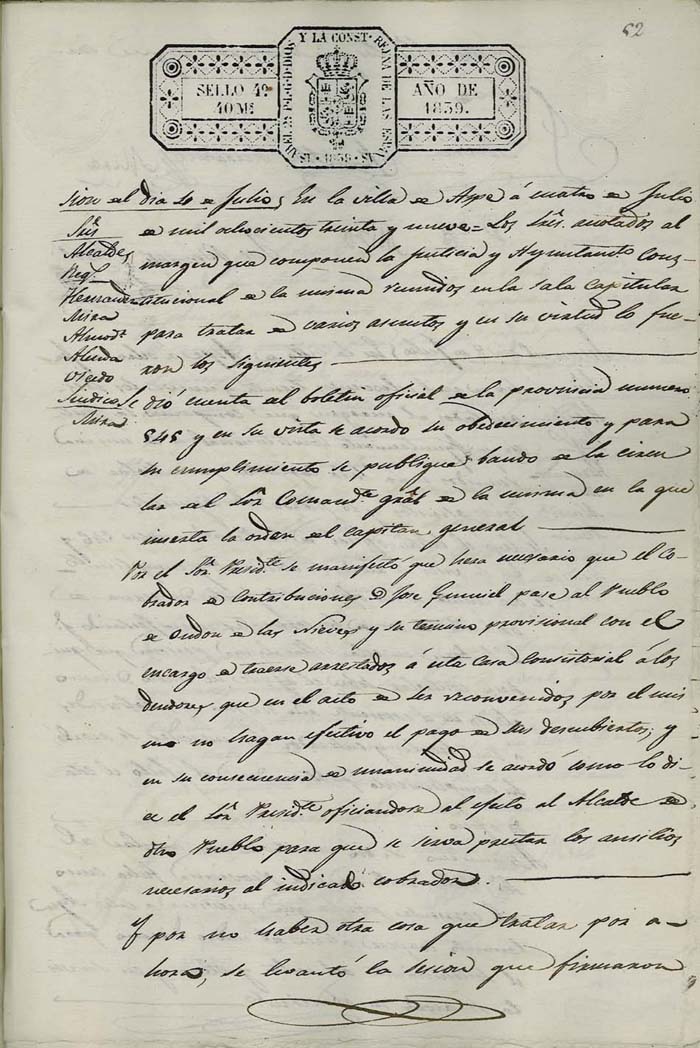 52
SELLO 4º
40 Ms
AÑO DE
1839.
Y LA CONST. REYNA DE LAS ESPAÑAS
1839
sion del dia 4 de Julio, En la villa de Aspe á cuatro de Julio
Sres
Alcaldes
Regs
Hernandez
Mira
Almodr
Almda
Vicedo
Sindico
Mira
de mil ochocientos treinta y nueve = Los Sres. anotados al
margen que componen la Justicia y Ayuntamto Cons-
titucional de la misma reunidos en la sala capitular
para tratar de varios asuntos y en su virtud lo fue-
ron los siguientes
Se dió cuenta del boletin oficial de la provincia numero
545 y en su vista se acordo su obedecimiento y para
su cumplimiento se publique bando de la circu
lar del Sor Comandte gral de la misma en la que
inserta la orden del capitan general
Por el Sor Presidte se manifestó que hera necesario que el co-
brador de contribuciones D Jose pase al Pueblo
de Ondon de las Nieves y su termino provisional con el
encargo de traerse arrestados á esta casa consistorial á los
deudores que en el acto de ser reconvenidos por el mis
mo no hagan efectivo el pago de sus descubiertos; y
en su consecuencia de unanimidad se acordó como lo di-
ce el Sor Presidte oficiandose al efecto al Alcalde de
dho Pueblo para que se sirva prestar los ausilios
necesarios al indicado cobrador.
Y por no haber otra cosa que tratar por a-
hora, se levantó la sesion que firmaron